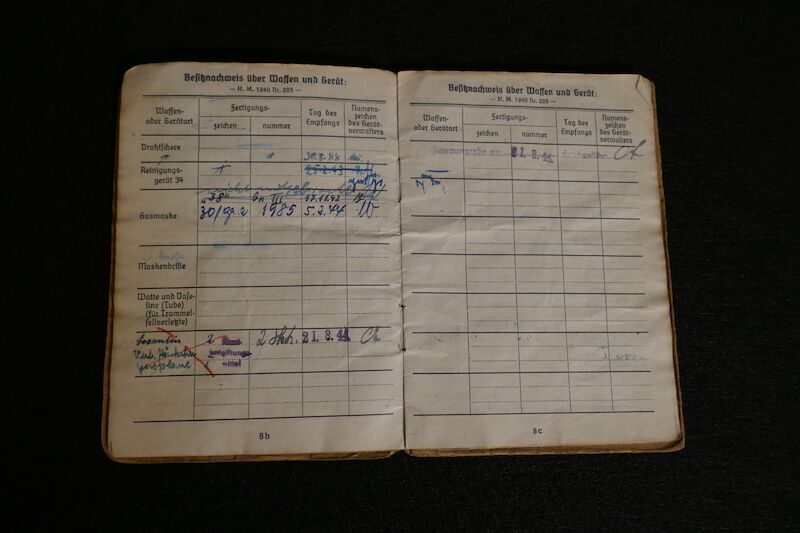 Besitznachweis über Waffen und Gerät:
— H. M. 1940 Nr. 205 —
Waffen- oder Gerätart
Fertigungs-
zeichen
nummer
Tag des Empfangs
Namens- zeichen des Gerät- verwalters
Drahtschere
Reinigungs- gerät 34
25.2.43
"38"
17.11.42
Gasmaske
30/ga 2 1985 5.2.44
Maskenbrille
Watte und Vase- line (Tube) (für Trommel- fellverletzte)
2
entgiftungs-
mittel
2 21. 8. 44
8b
Besitznachweis über Waffen und Gerät:
— H. M. 1940 Nr. 205 —
Waffen- oder Gerätart
Fertigungs-
zeichen
nummer
Tag des Empfangs
Namens- zeichen des Gerät- verwalters
Gasraumprobe am 21. 8. 44 durchgeführt
8c